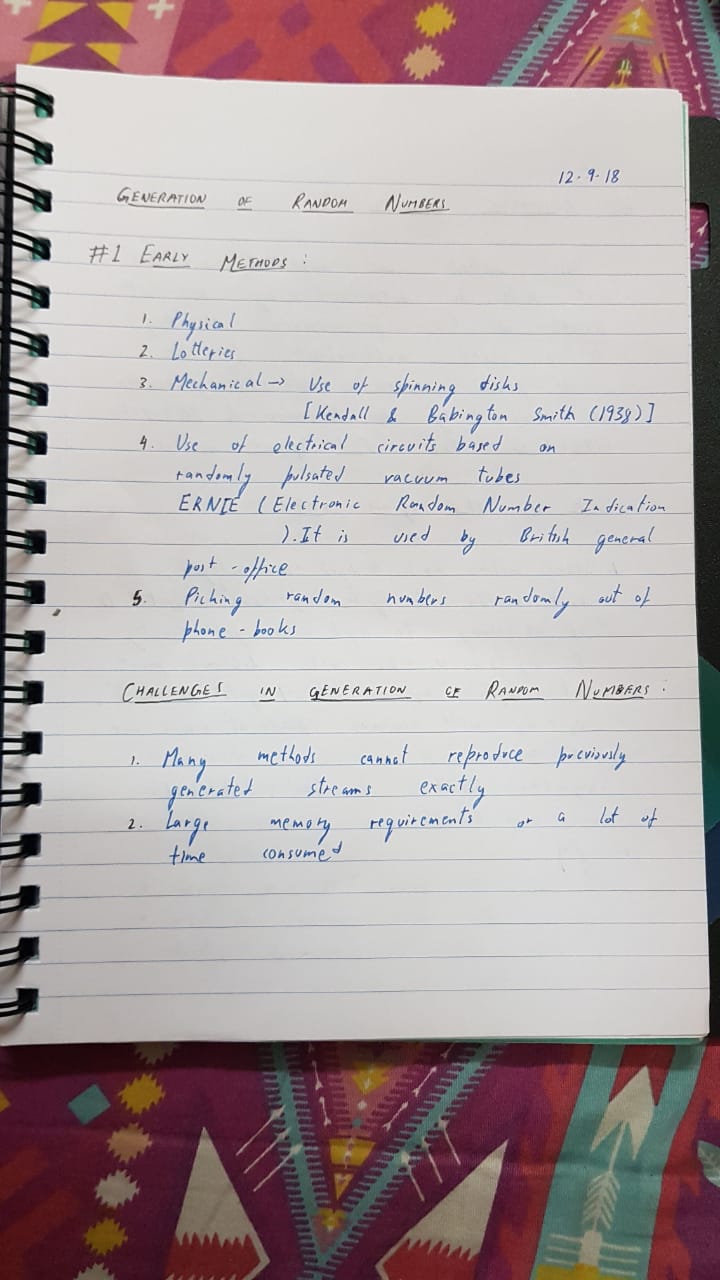 12.9.18
GENERATION OF RANDOM NUMBERS
#1 EARLY METHODS :
1. Physical
2. Lotteries
3. Mechanical → Use of spinning disks
[Kendall & Babington Smith (1938)]
4. Use of electrical circuits based on
randomly pulsated vacuum tubes
ERNIE (Electronic Random Number Indication
). It is used by British general
post - office
5. Picking random numbers randomly out of
phone - books
CHALLENGES IN GENERATION OF RANDOM NUMBERS :
1. Many methods cannot reproduce previously
generated streams exactly
2. Large memory requirements or a lot of
time consumed